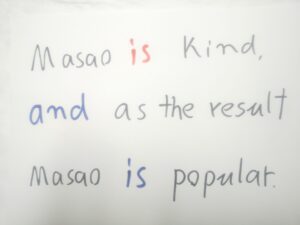 Masao is kind,
and as the result
Masao is popular.